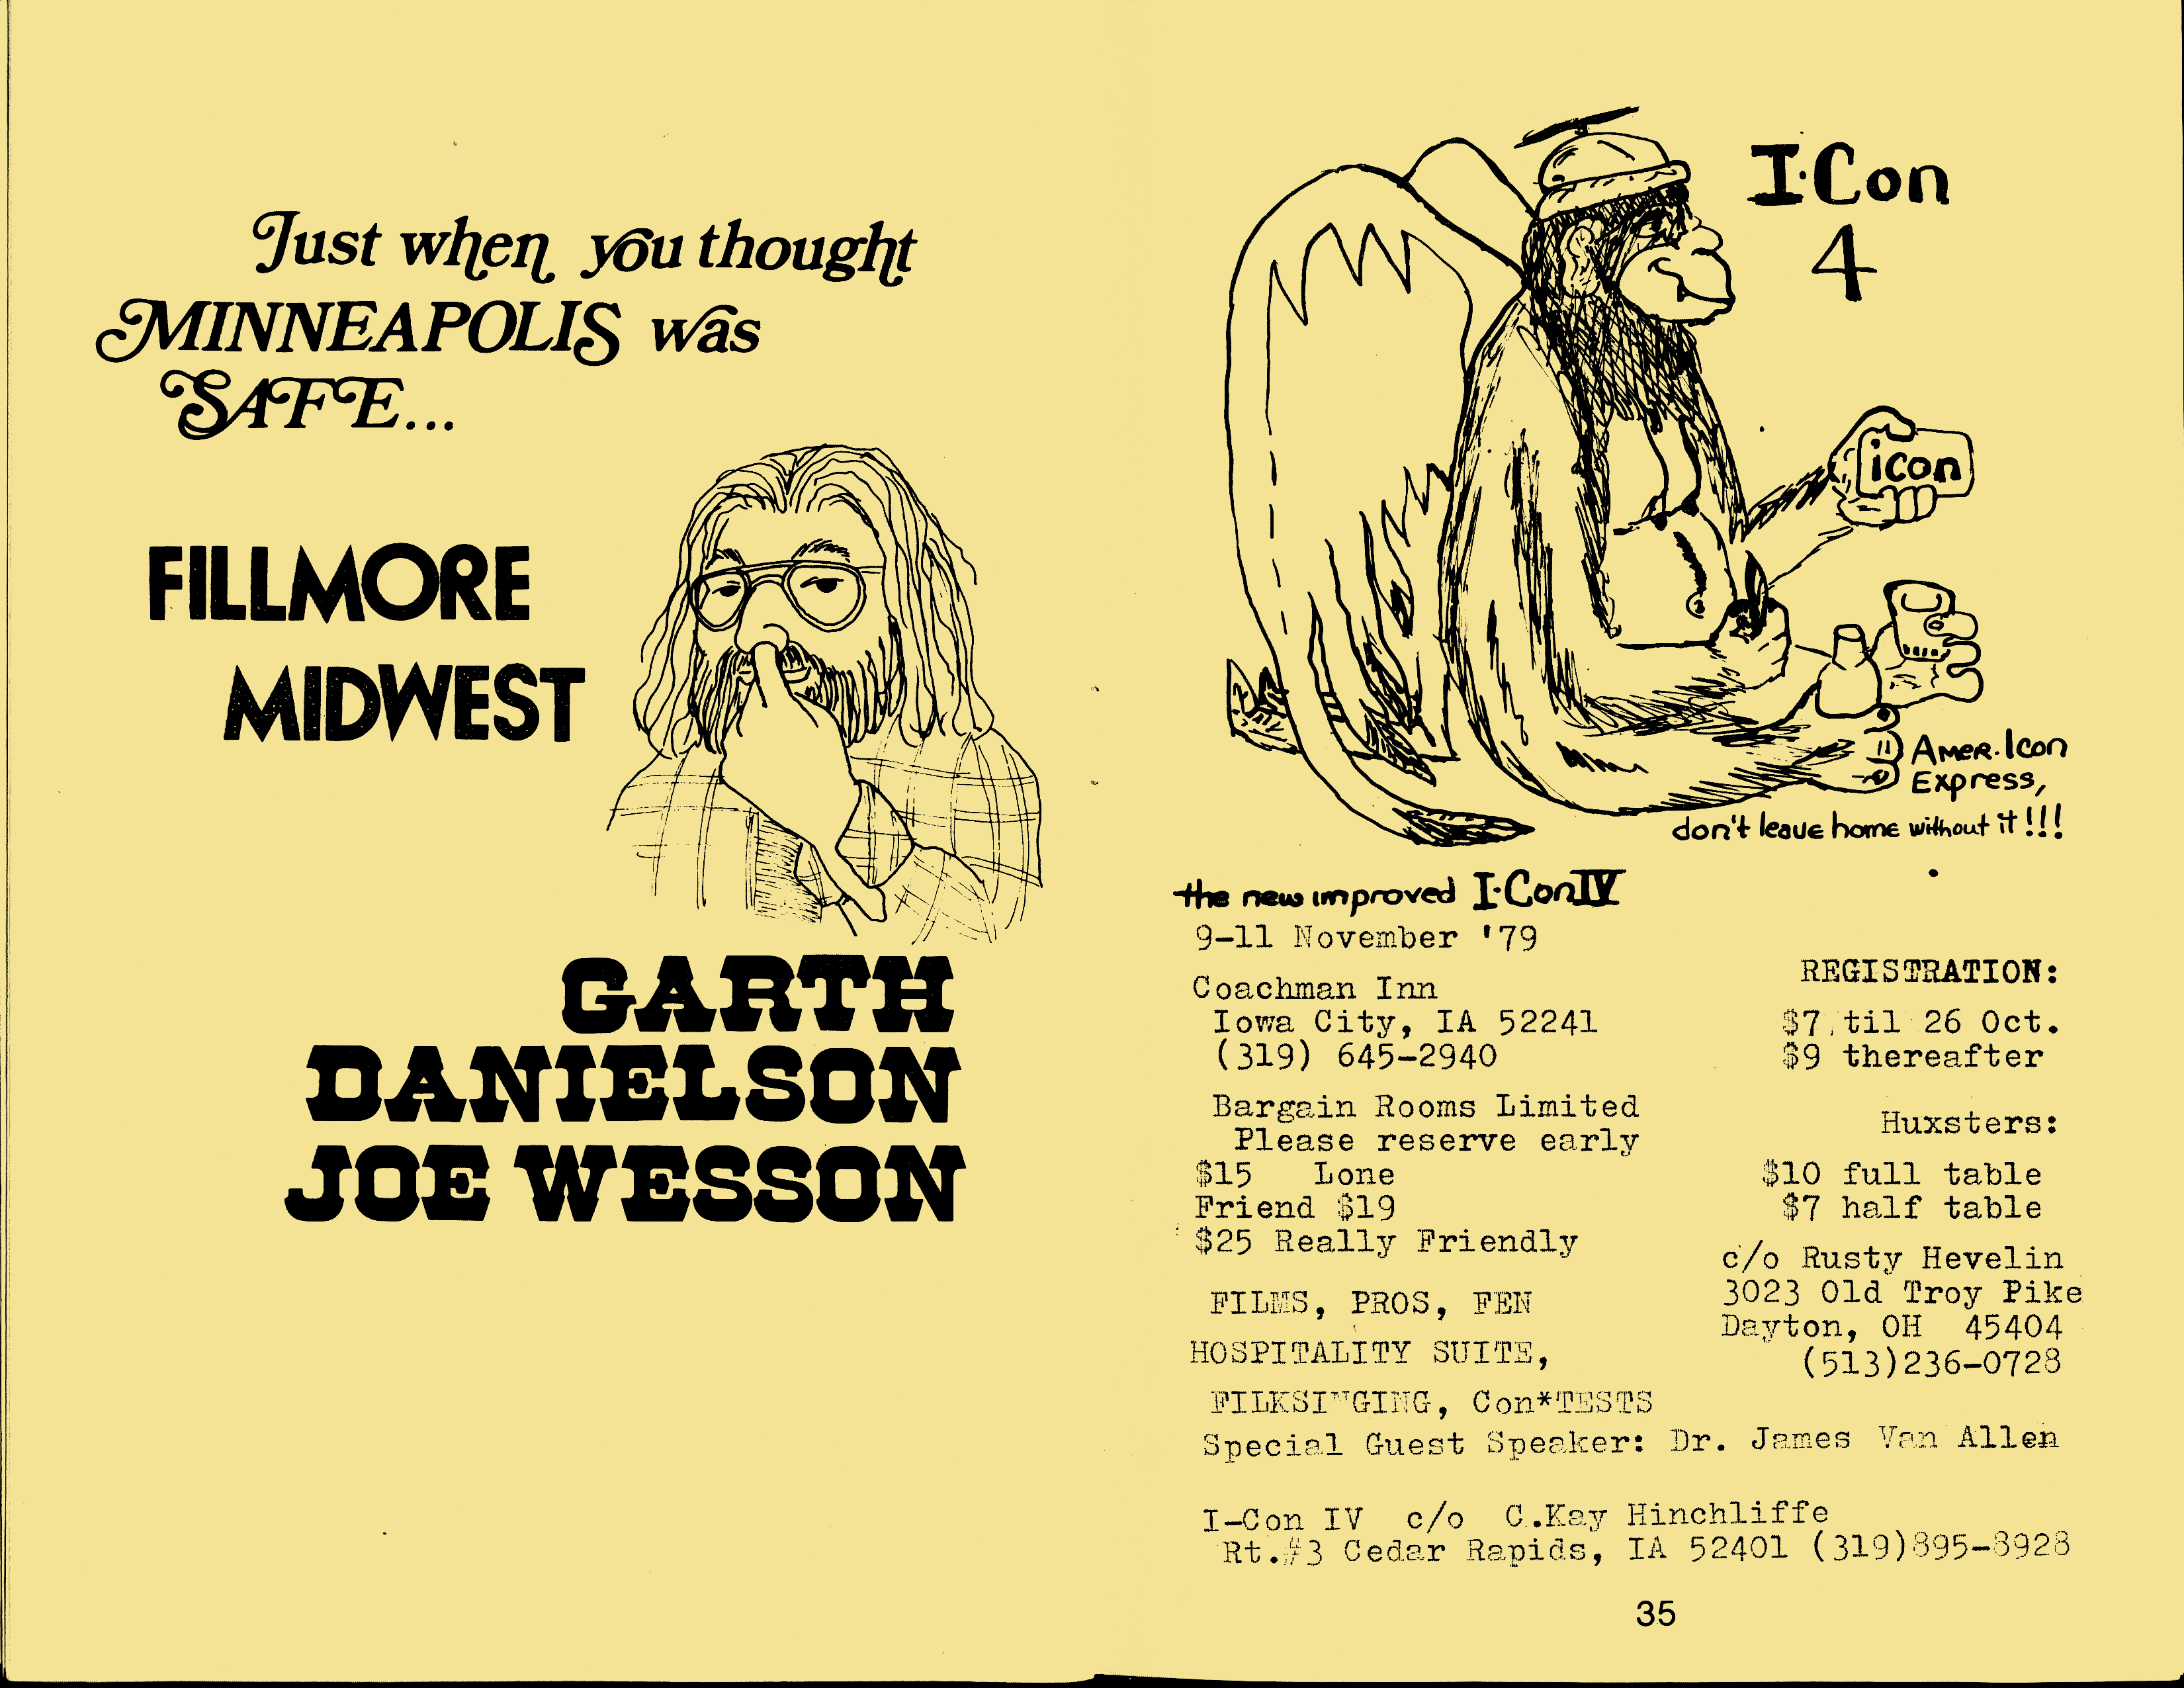 Just when you thought
MINNEAPOLIS was
SAFE...
FILLMORE
MIDWEST
GARTH
DANIELSON
JOE WESSON
I·Con
4
icon
Amer·Icon
Express,
don't leave home without it!!!
the new improved I·Con IV
9-11 November '79
Coachman Inn
Iowa City, IA 52241
(319) 645-2940
Bargain Rooms Limited
Please reserve early
$15 Lone
Friend $19
$25 Really Friendly
FILMS, PROS, FEN
HOSPITALITY SUITE,
FILKSINGING, Con*TESTS
REGISTRATION:
$7 til 26 Oct.
$9 thereafter
Huxsters:
$10 full table
$7 half table
c/o Rusty Hevelin
3023 Old Troy Pike
Dayton, OH 45404
(513)236-0728
Special Guest Speaker: Dr. James Van Allen
I-Con IV c/o C.Kay Hinchliffe
Rt.#3 Cedar Rapids, IA 52401 (319)895-8928
35